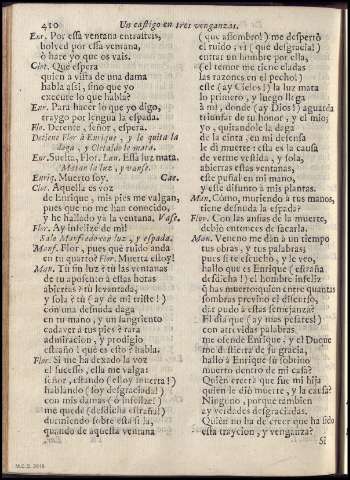 410 Un castigo en tres venganzas.
Enr. Por essa ventana entrasteis,
bolved por essa ventana,
ò harè yo que os vais.
Clot. Que espera
quien a vista de una dama
habla assi, sino que yo
execute lo que habla?
Enr. Para hacer lo que yo digo,
traygo por lengua la espada.
Flor. Detente, señor, espera.
Detiene Flor à Enrique, y le quita la
daga, y Clotaldo le mata.
Enr. Suelta, Flor. Lau. Essa luz mata.
Matan la luz, y vanse.
Enriq. Muerto soy. Cae.
Clot. Aquella es voz
de Enrique, mis pies me valgan,
pues que no me han conocido,
y he hallado yà la ventana. Vase.
Flor. Ay infelize de mi!
Sale Manfredo con luz, y espada.
Manf. Flor, pues què ruido anda
en tu quarto? Flor. Muerta estoy!
Man. Tù sin luz? tù las ventanas
de tu aposento à estas horas
abiertas? tù levantada,
y sola? tù (ay de mi triste!)
con una desnuda daga
en tu mano, y un sangriento
cadaver à tus pies? rara
admiracion, y prodigio
estraño! què es esto? habla.
Flor. Si me ha dexado la voz
el sucesso, ella me valga:
señor, estando (estoy muerta!)
hablando (soy desgraciada!)
con mis damas (ò infelize!)
me quedè (desdicha estraña!)
durmiendo sobre esta silla,
quando de aquella ventana
(que assombro!) me despertò
el ruido; vi (què desgracia!)
entrar un hombre por ella,
(el temor me tiene eladas
las razones en el pecho!)
este (ay Cielos!) la luz mata
lo primero, y luego llega
à mi, donde (ay Dios!) aguarda
triunfar de tu honor, y el mio;
yo, quitandole la daga
de la cinta, en mi defensa
le di muerte: esta es la causa
de verme vestida, y sola,
abiertas essas ventanas,
este puñal en mi mano,
y esse difunto à mis plantas.
Man. Còmo, muriendo à tus manos,
tiene desnuda la espada?
Flor. Con las ansias de la muerte,
debiò entonces de sacarla.
Man. Veneno me dàn à un tiempo
tus obras, y tus palabras;
pues si te escucho, y le veo,
hallo que es Enrique (estraña
desdicha!) el hombre infeliz
q̃ has muerto: quien entre quantas
sombras previno el discurso,
dia pudo à estas semejanza?
El dia que (ay mas pesares!)
con atrevidas palabras
me ofende Enrique, y el Duque
me destierra de su gracia,
hallo à Enrique su sobrino
muerto dentro de mi casa?
Quien creerà que fue mi hija
quien le diò muerte, y la causa?
Ninguno, porque tambien
ay verdades desgraciadas.
Quien no ha de creer que ha sido
esta traycion, y venganza?
Si
M.C.D. 2018